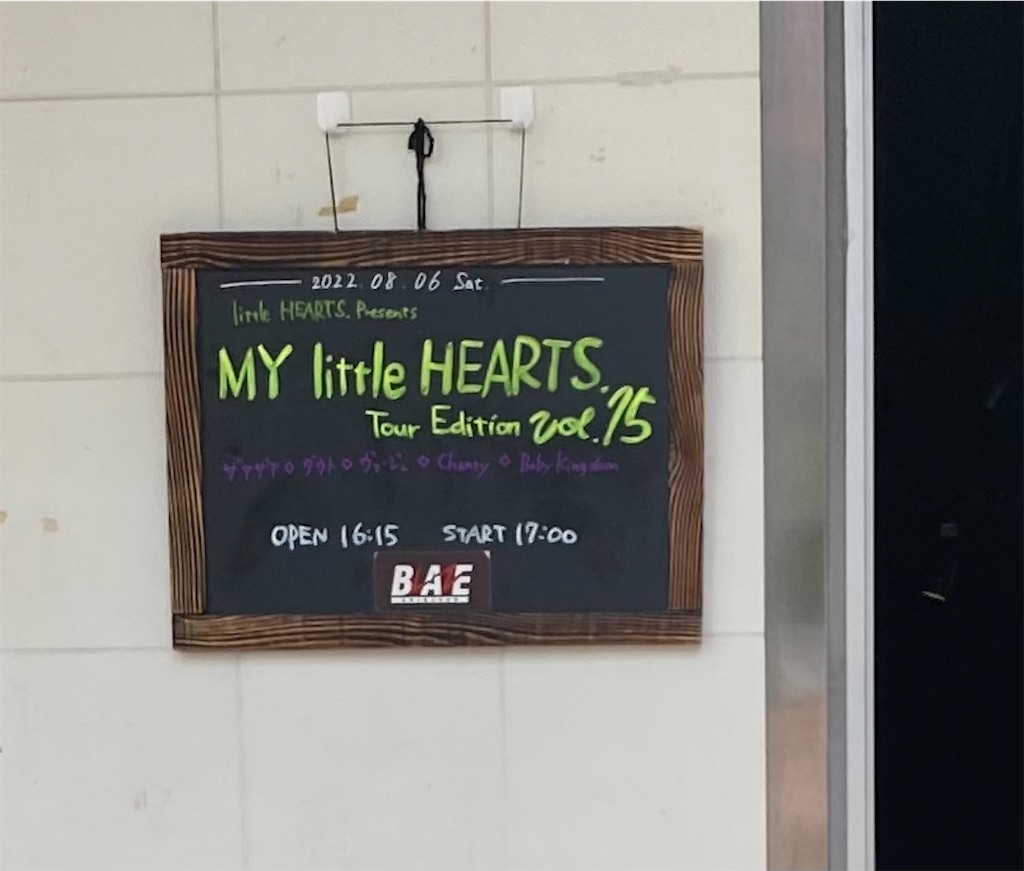 2022.08.06 Sat.
little HEARTS. Presents
MY little HEARTS.
Tour Edition vol.15
ザアザア◇ダウト◇ヴァージュ◇Chanty◇Baby Kingdom
OPEN 16:15 START 17:00
BLAZE